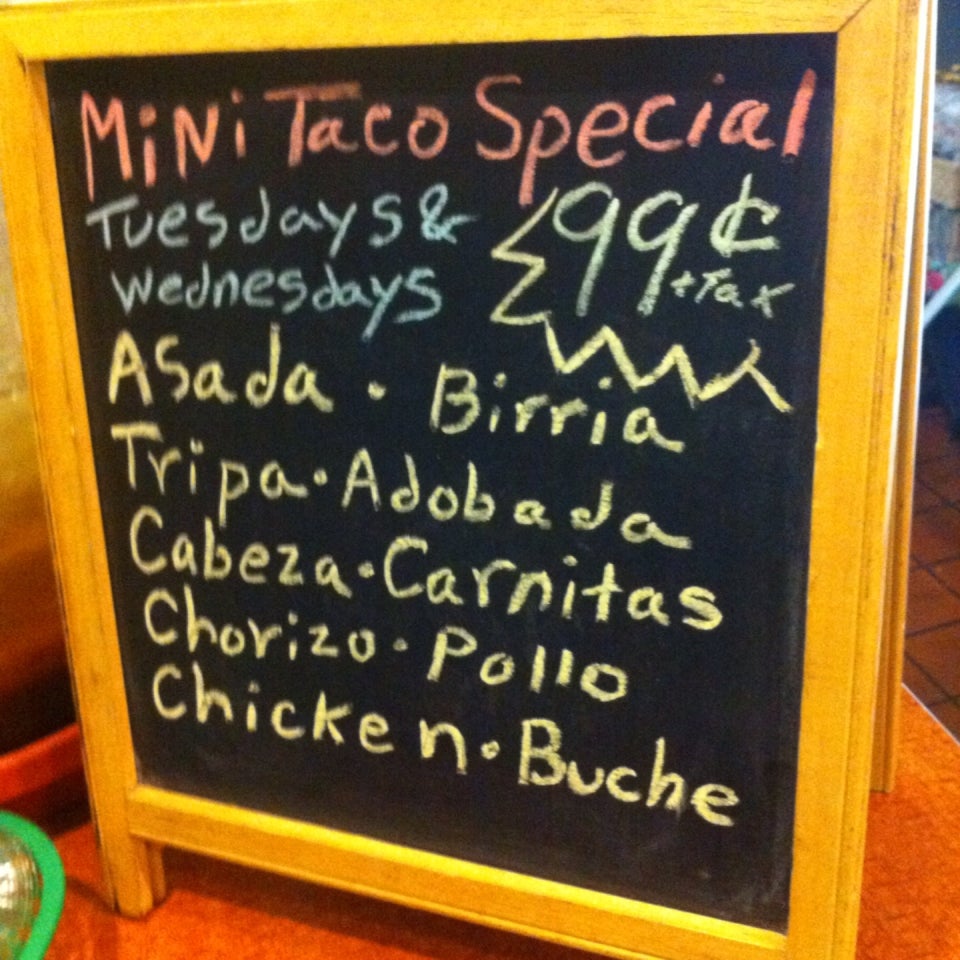 MiNi Taco Special
Tuesdays & 99¢
Wednesdays +Tax
Asada · Birria
Tripa · Adobada
Cabeza · Carnitas
Chorizo · Pollo
Chicken · Buche